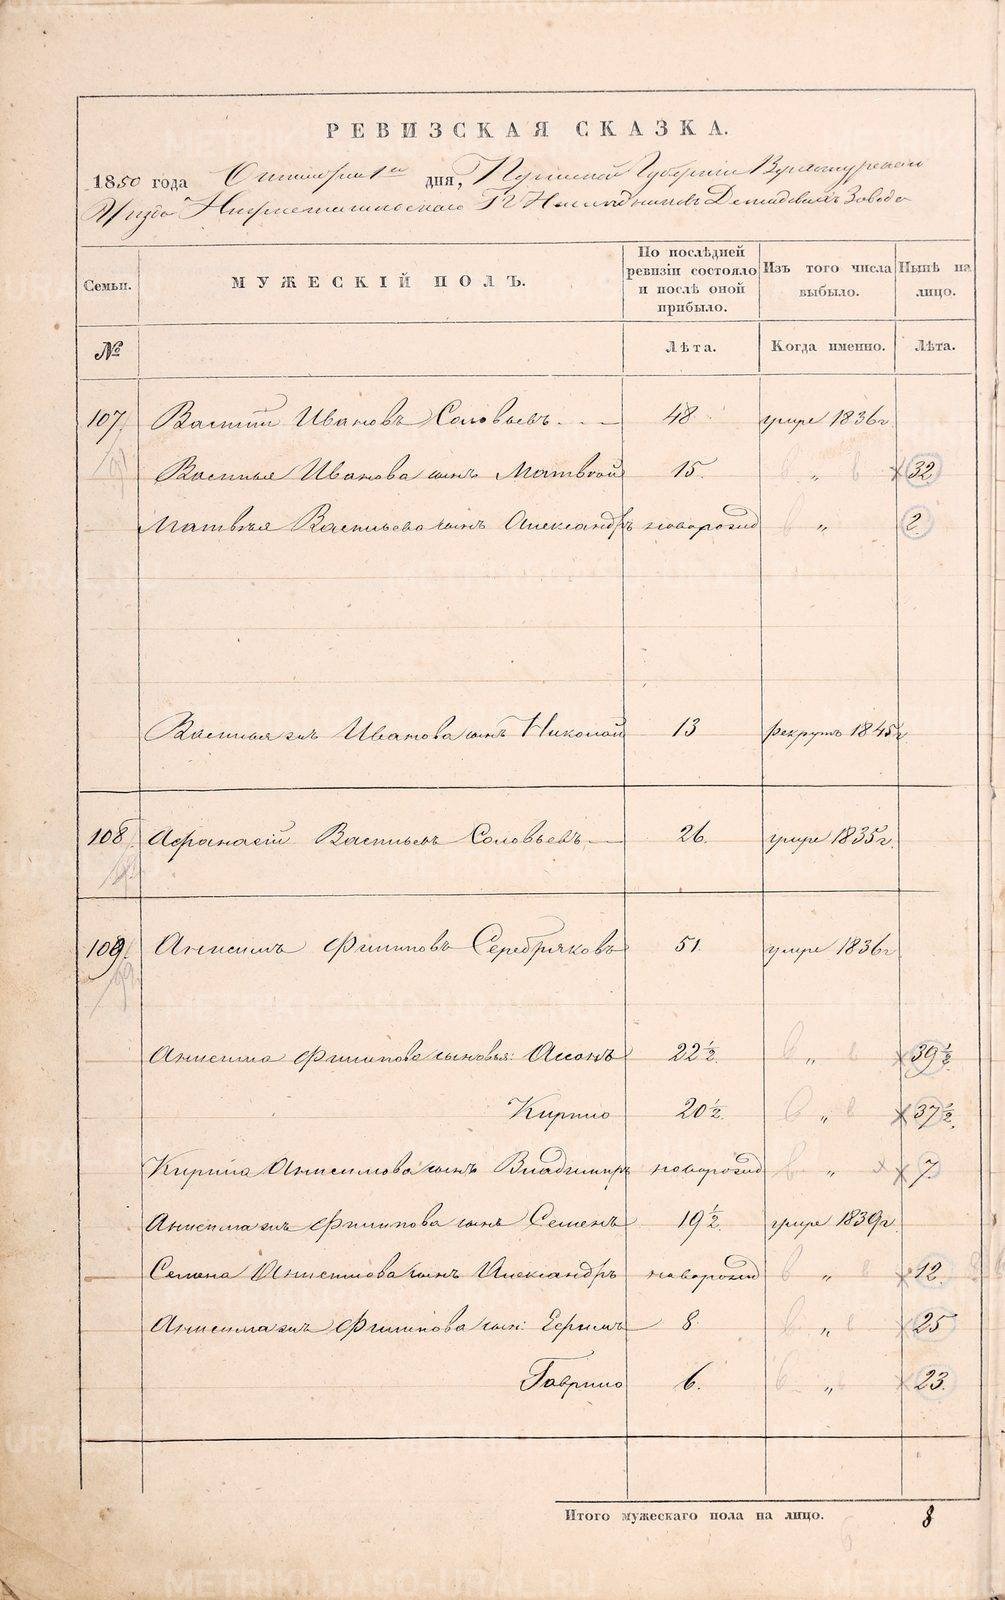 РЕВИЗСКАЯ СКАЗКА.
1850 года Октября 1го дня, Пермской Губернии Верхотурскаго
Уезда Нижнетагильскаго Гг Наследниковъ Демидовыхъ Завода
Семьи. МУЖЕСКІЙ ПОЛЪ. По послѣдней ревизіи состояло и послѣ оной прибыло. Изъ того числа выбыло. Нынѣ на лицо.
№ Лѣта. Когда именно. Лѣта.
107. Василій Ивановъ Соловьевъ 48 умре 1836г
Василья Иванова сынъ Матвѣй 15. „ 32
Матвѣя Васильева сынъ Александръ новорожд „ 2
Василья же Иванова сынъ Николай 13 рекрутъ 1845г
108 Афанасій Васильевъ Соловьевъ 26. умре 1835г.
109. Анисимъ Филиповъ Серебряковъ 51 умре 1836г
Анисима Филипова сыновья: 22½ „ 39½
Кирило 20½. „ 37½.
Кирила Анисимова сынъ Владимиръ новорожд „ 7.
Анисима же Филипова сынъ Семенъ 19½. умре 1839г.
Семена Анисимова сынъ Александръ новорожд „ 12.
Анисима же Филипова сын: Ефимъ 8 „ 25
Гаврило 6. „ 23.
Итого мужескаго пола на лицо. 8